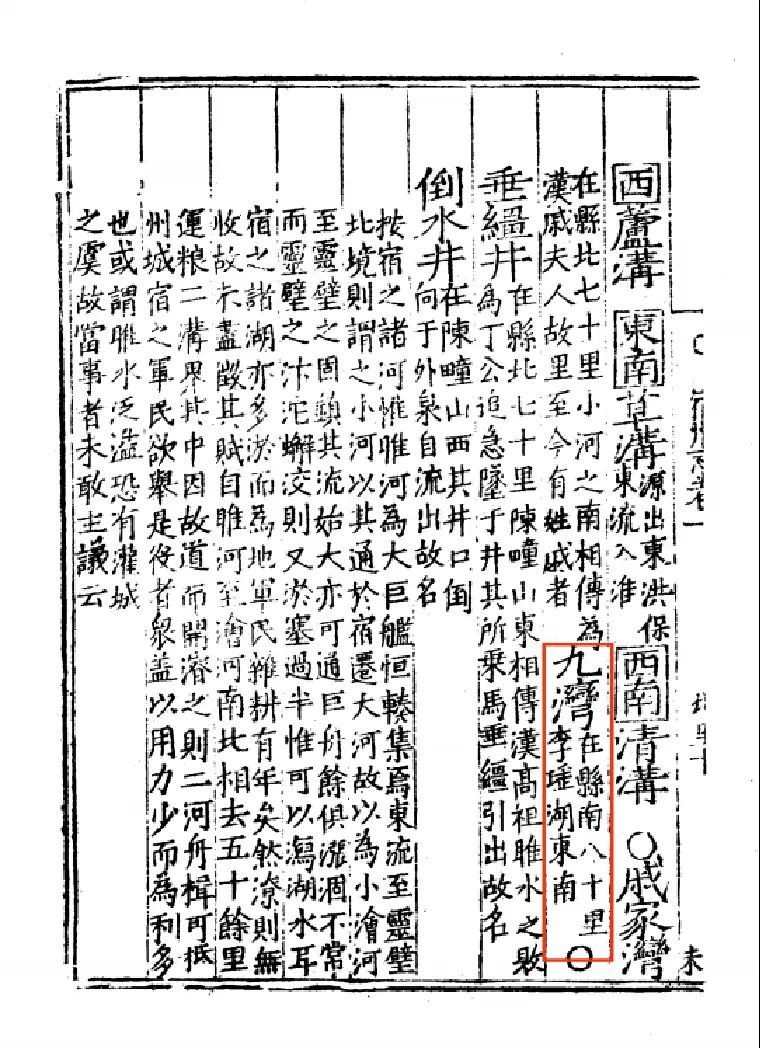 西蘆溝 東南草溝
源出東洪保
東流入淮
西南清溝 ○戚家灣
在縣北七十里小河之南相傳為
漢戚夫人故里至今有姓戚者
九灣
在縣南八十里
李瑶湖東南
○
垂繮井
在縣北七十里陳疃山東相傳漢高祖睢水之敗
為丁公追急墜于井其所乘馬垂繮引出故名
倒水井
在陳疃山西其井口倒
向于外泉自流出故名
按宿之諸河惟睢河為大巨艦恒輳集焉東流至靈璧
北境則謂之小河以其通於宿遷大河故以為小澮河
至靈璧之固鎮其流始大亦可通巨舟餘俱漲涸不常
而靈璧之汴沱澥洨則又淤塞過半惟可以瀉湖水耳
宿之諸湖亦多淤而為地軍民雜耕有年矣然潦則無
收故未盡徵其賦自睢河至澮河南北相去五十餘里
運粮二溝界其中因故道而開濬之則二河舟楫可抵
州城宿之軍民欲舉是役者衆盖以用力少而為利多
也或謂睢水泛溢恐有灌城
之虞故當事者未敢主議云